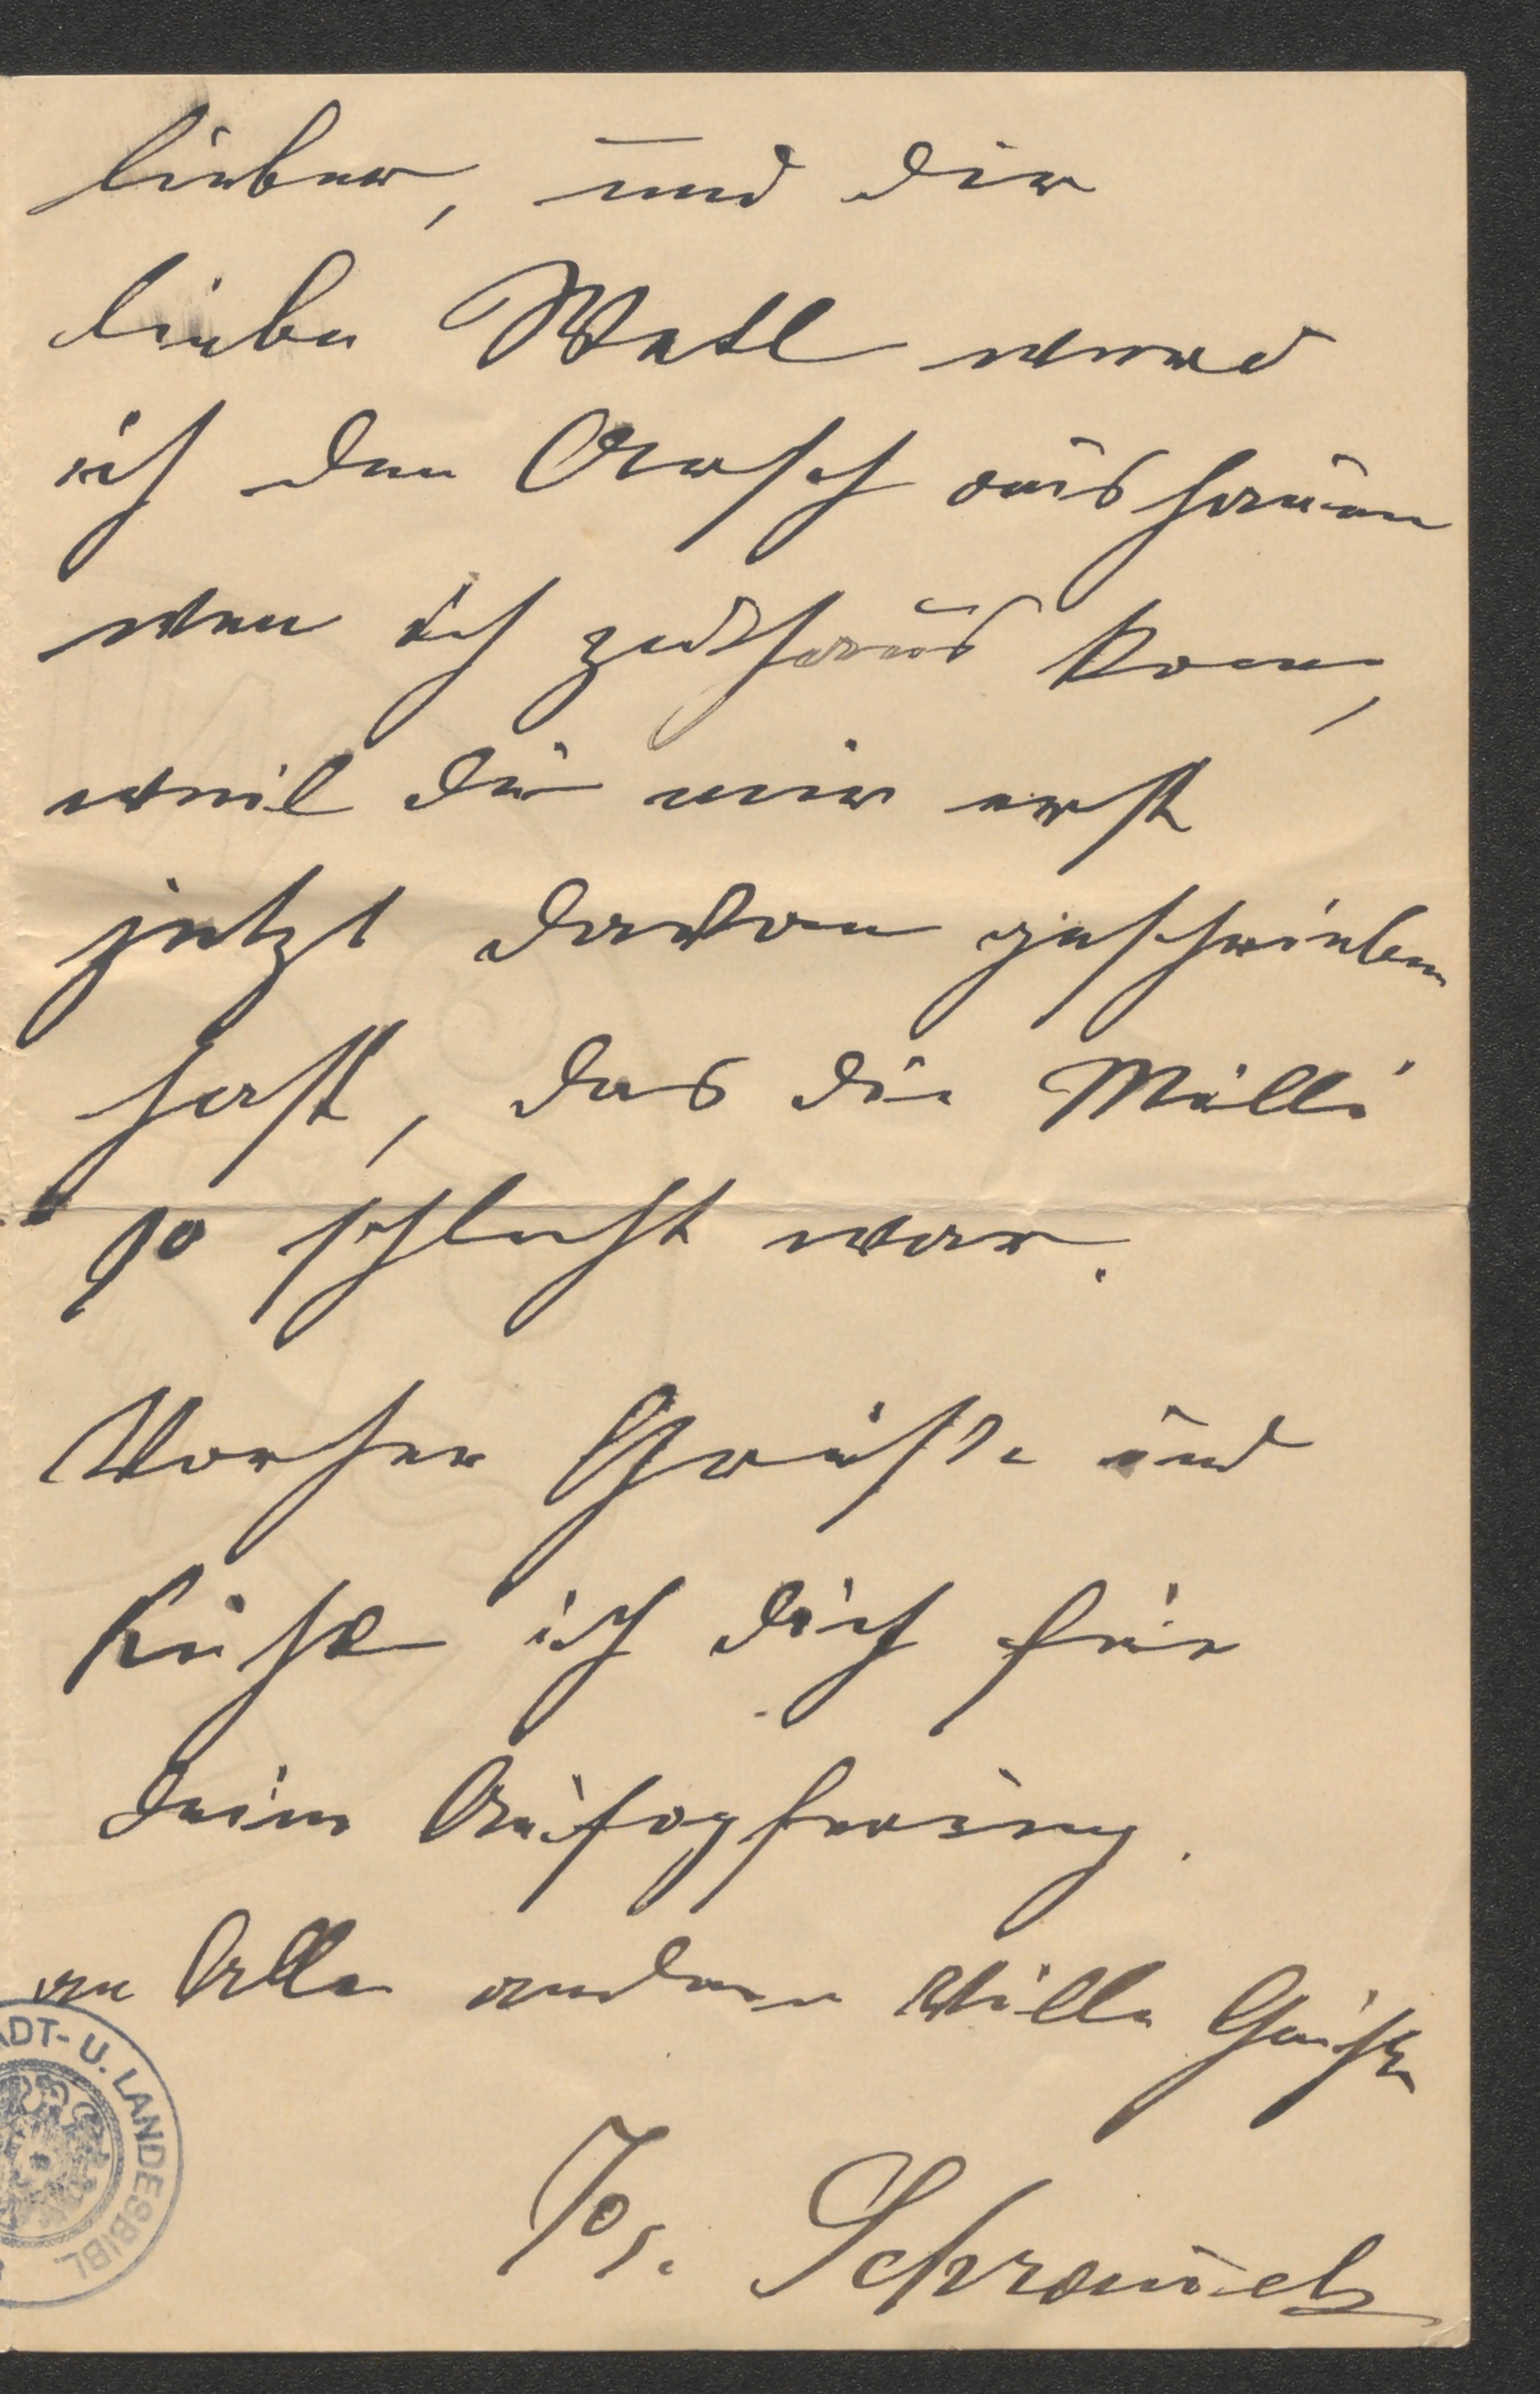 lieber, und dir
liebe Watl werd
ich den Arsch aushauen
wen ich zuhaus kom,
weil du mir erst
jetzt davon geschrieben
hast, das die Milli
so schlecht war.
Vorher Grüße und
Küße ich dich für
deine Aufopferung.
an Alle anderen viele Grüße
Jos. Schrammel
ADT- U. LANDESBIBL.